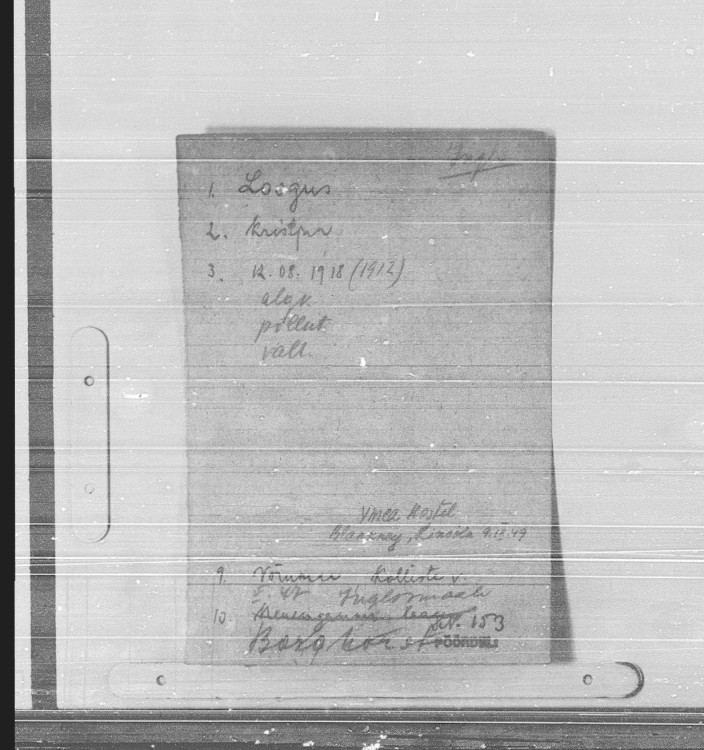 Ingl.
1. Loogus
2. Kristjan
3. 12.08.1918 (1912)
algk.
põllut.
vall.
Ymca Hostel
Blankney, Lincoln 9.II.49
9. Võrumaa Kolliste v.
5. 47 Inglismaale
10.
Bagborst
153
PÖÖRDELI